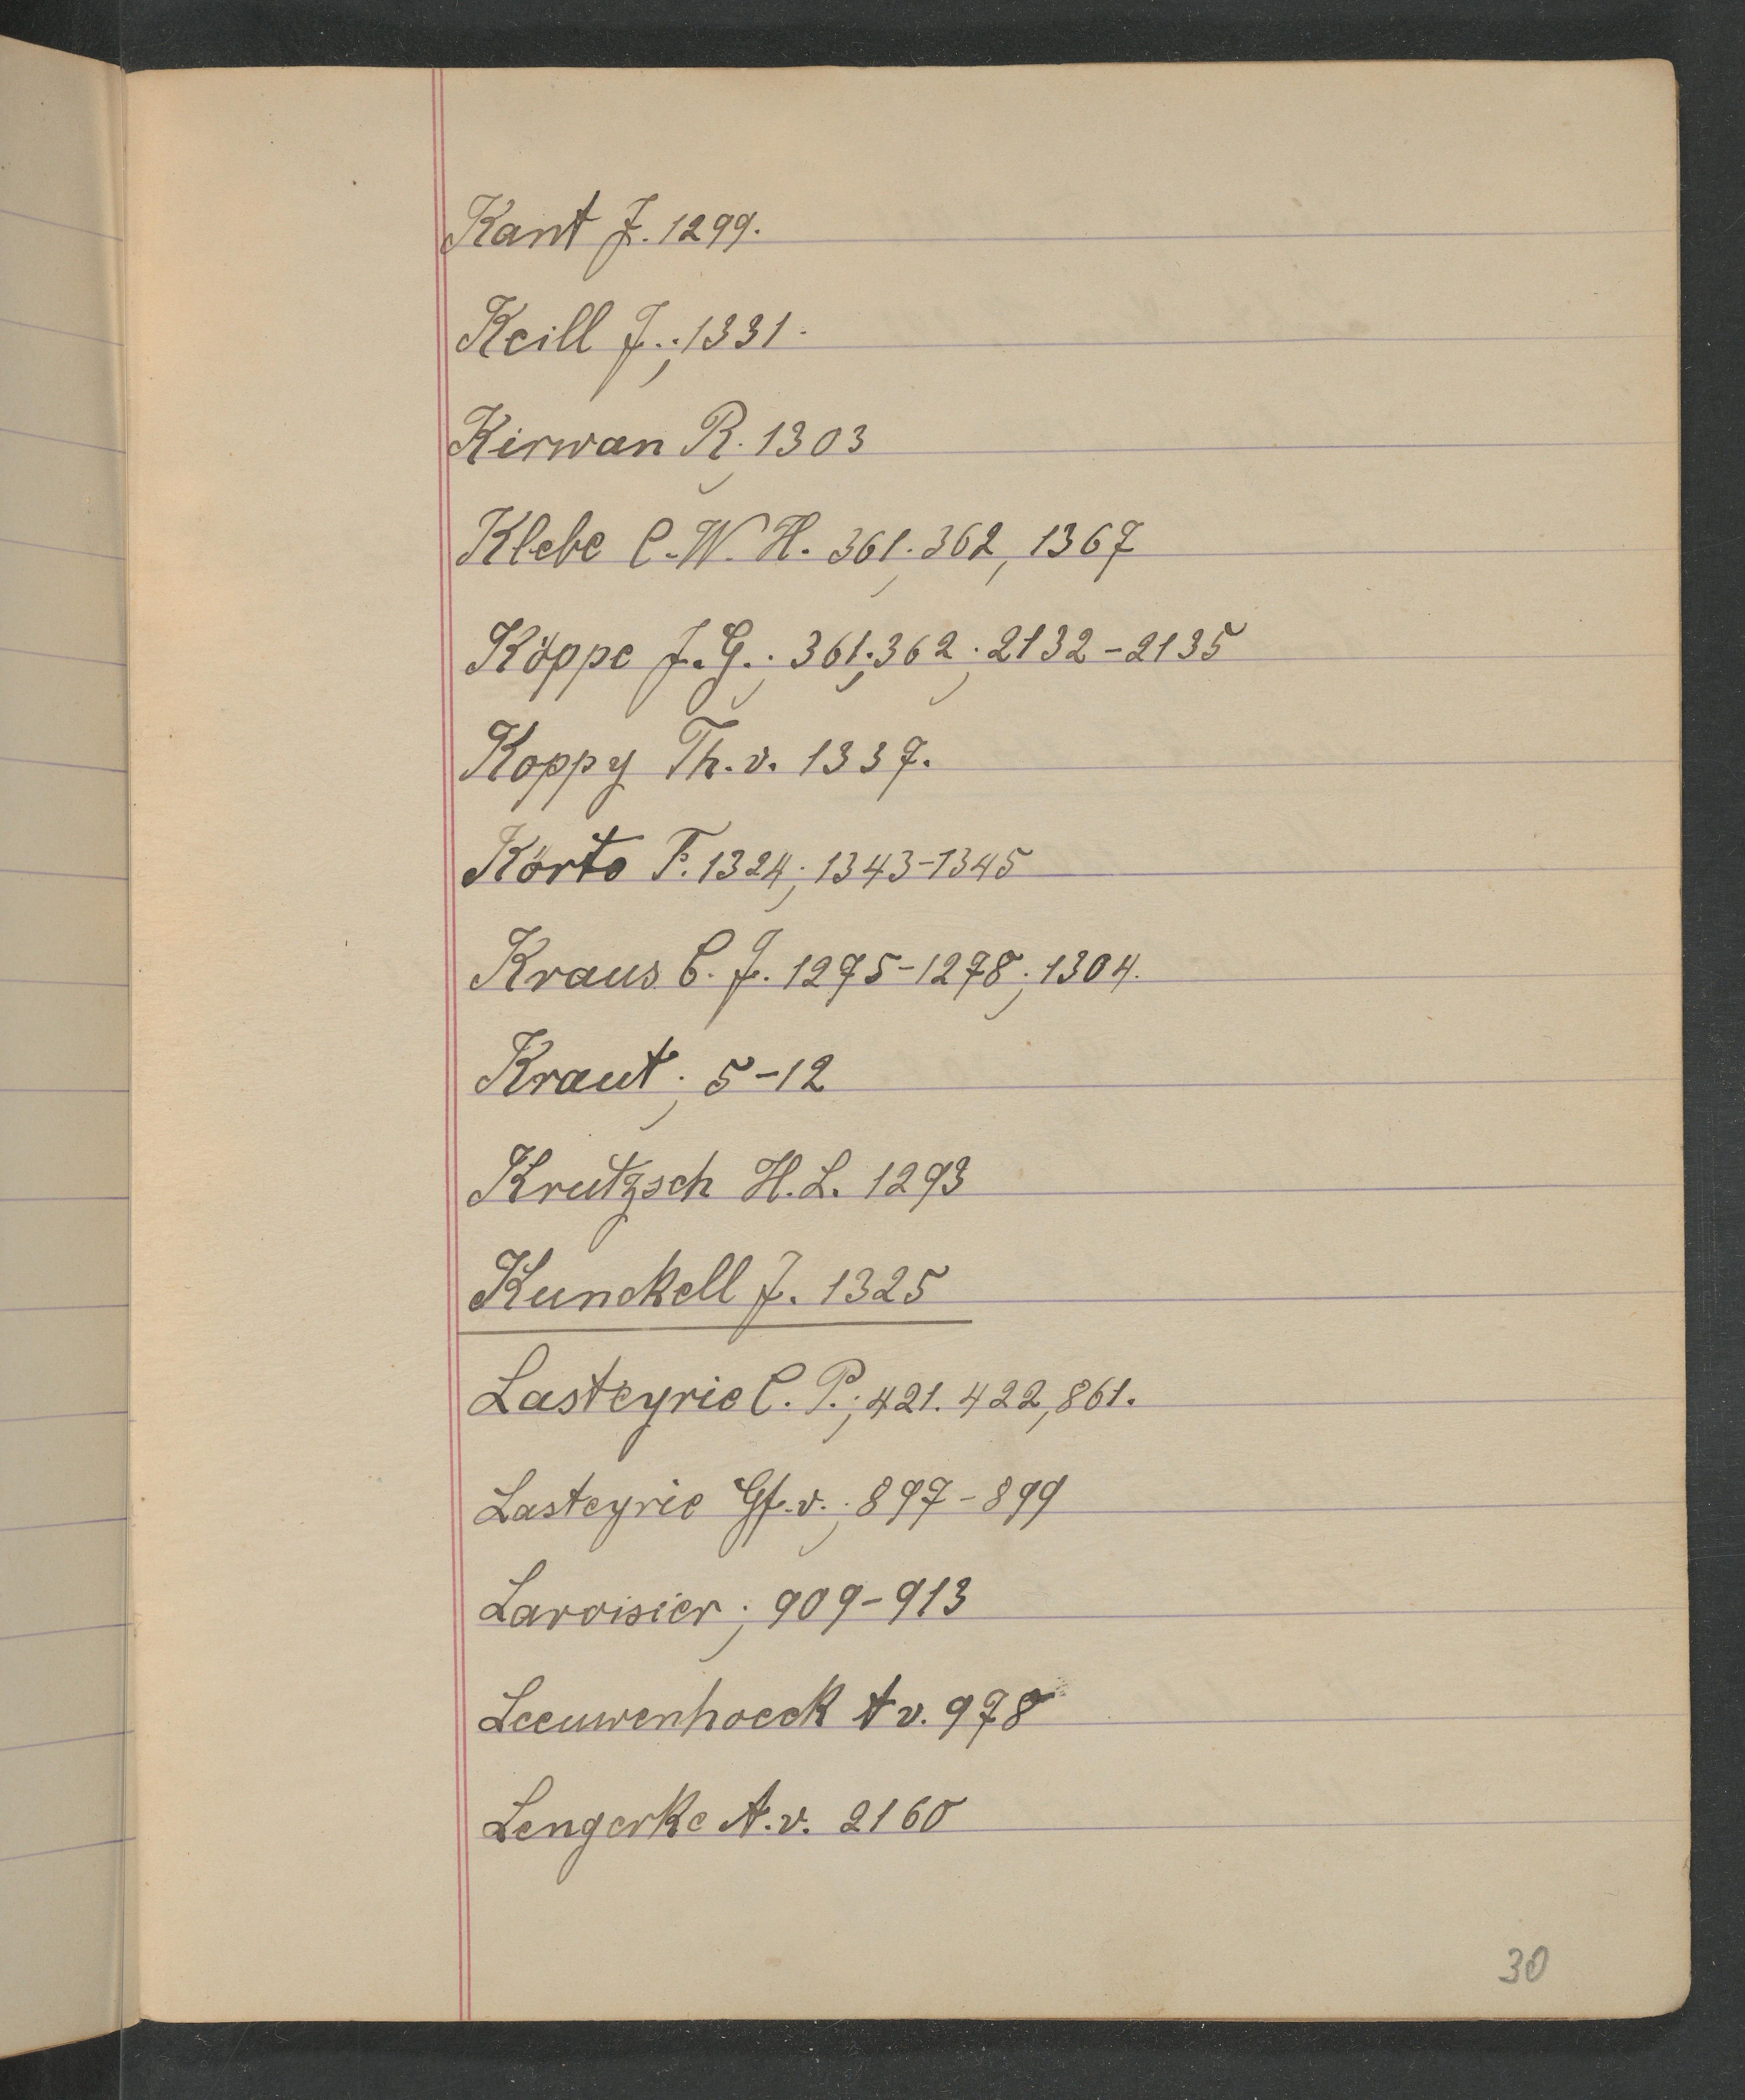 Kant J. 1299.
Keill J.; 1331.
Kirwan R; 1303
Klebe C. W. H. 361; 362, 1367
Köppe J. G.; 361; 362; 2132-2135
Koppy Th. v. 1337.
Körte F. 1324; 1343-1345
Kraus C. J. 1275-1278; 1304.
Kraut; 5-12
Krutzsch H. L. 1293
Kunckell J. 1325
Lasteyrie C. P.; 421. 422, 861.
Lasteyrie Gf. v.; 897-899
Lavoisier; 909-913
Leeuwenhoeck A v. 978
Lengerke A. v. 2160
30